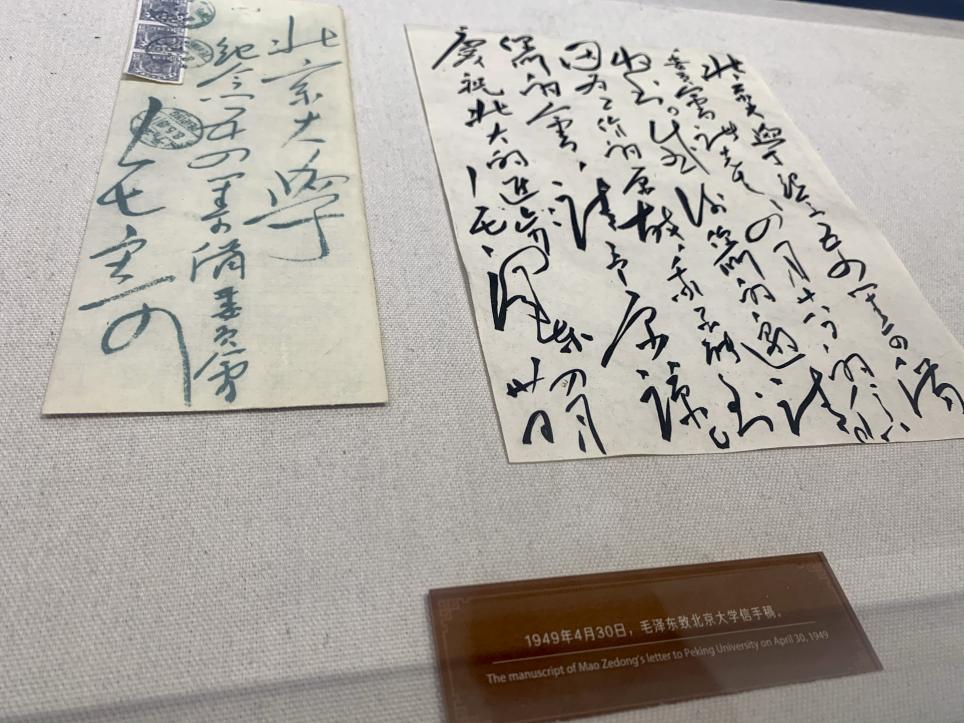 北京大學
紀念五四筹備委員會
北京大學紀念五四筹備
委員會諸先生：四月廿八日的信
收到。感謝你們的邀請。
因为工作的原故，我不能到
你們的會，請予原諒。
慶祝北大的進步！
毛澤東
四月卅日
1949年4月30日，毛泽东致北京大学信手稿。
The manuscript of Mao Zedong's letter to Peking University on April 30, 1949